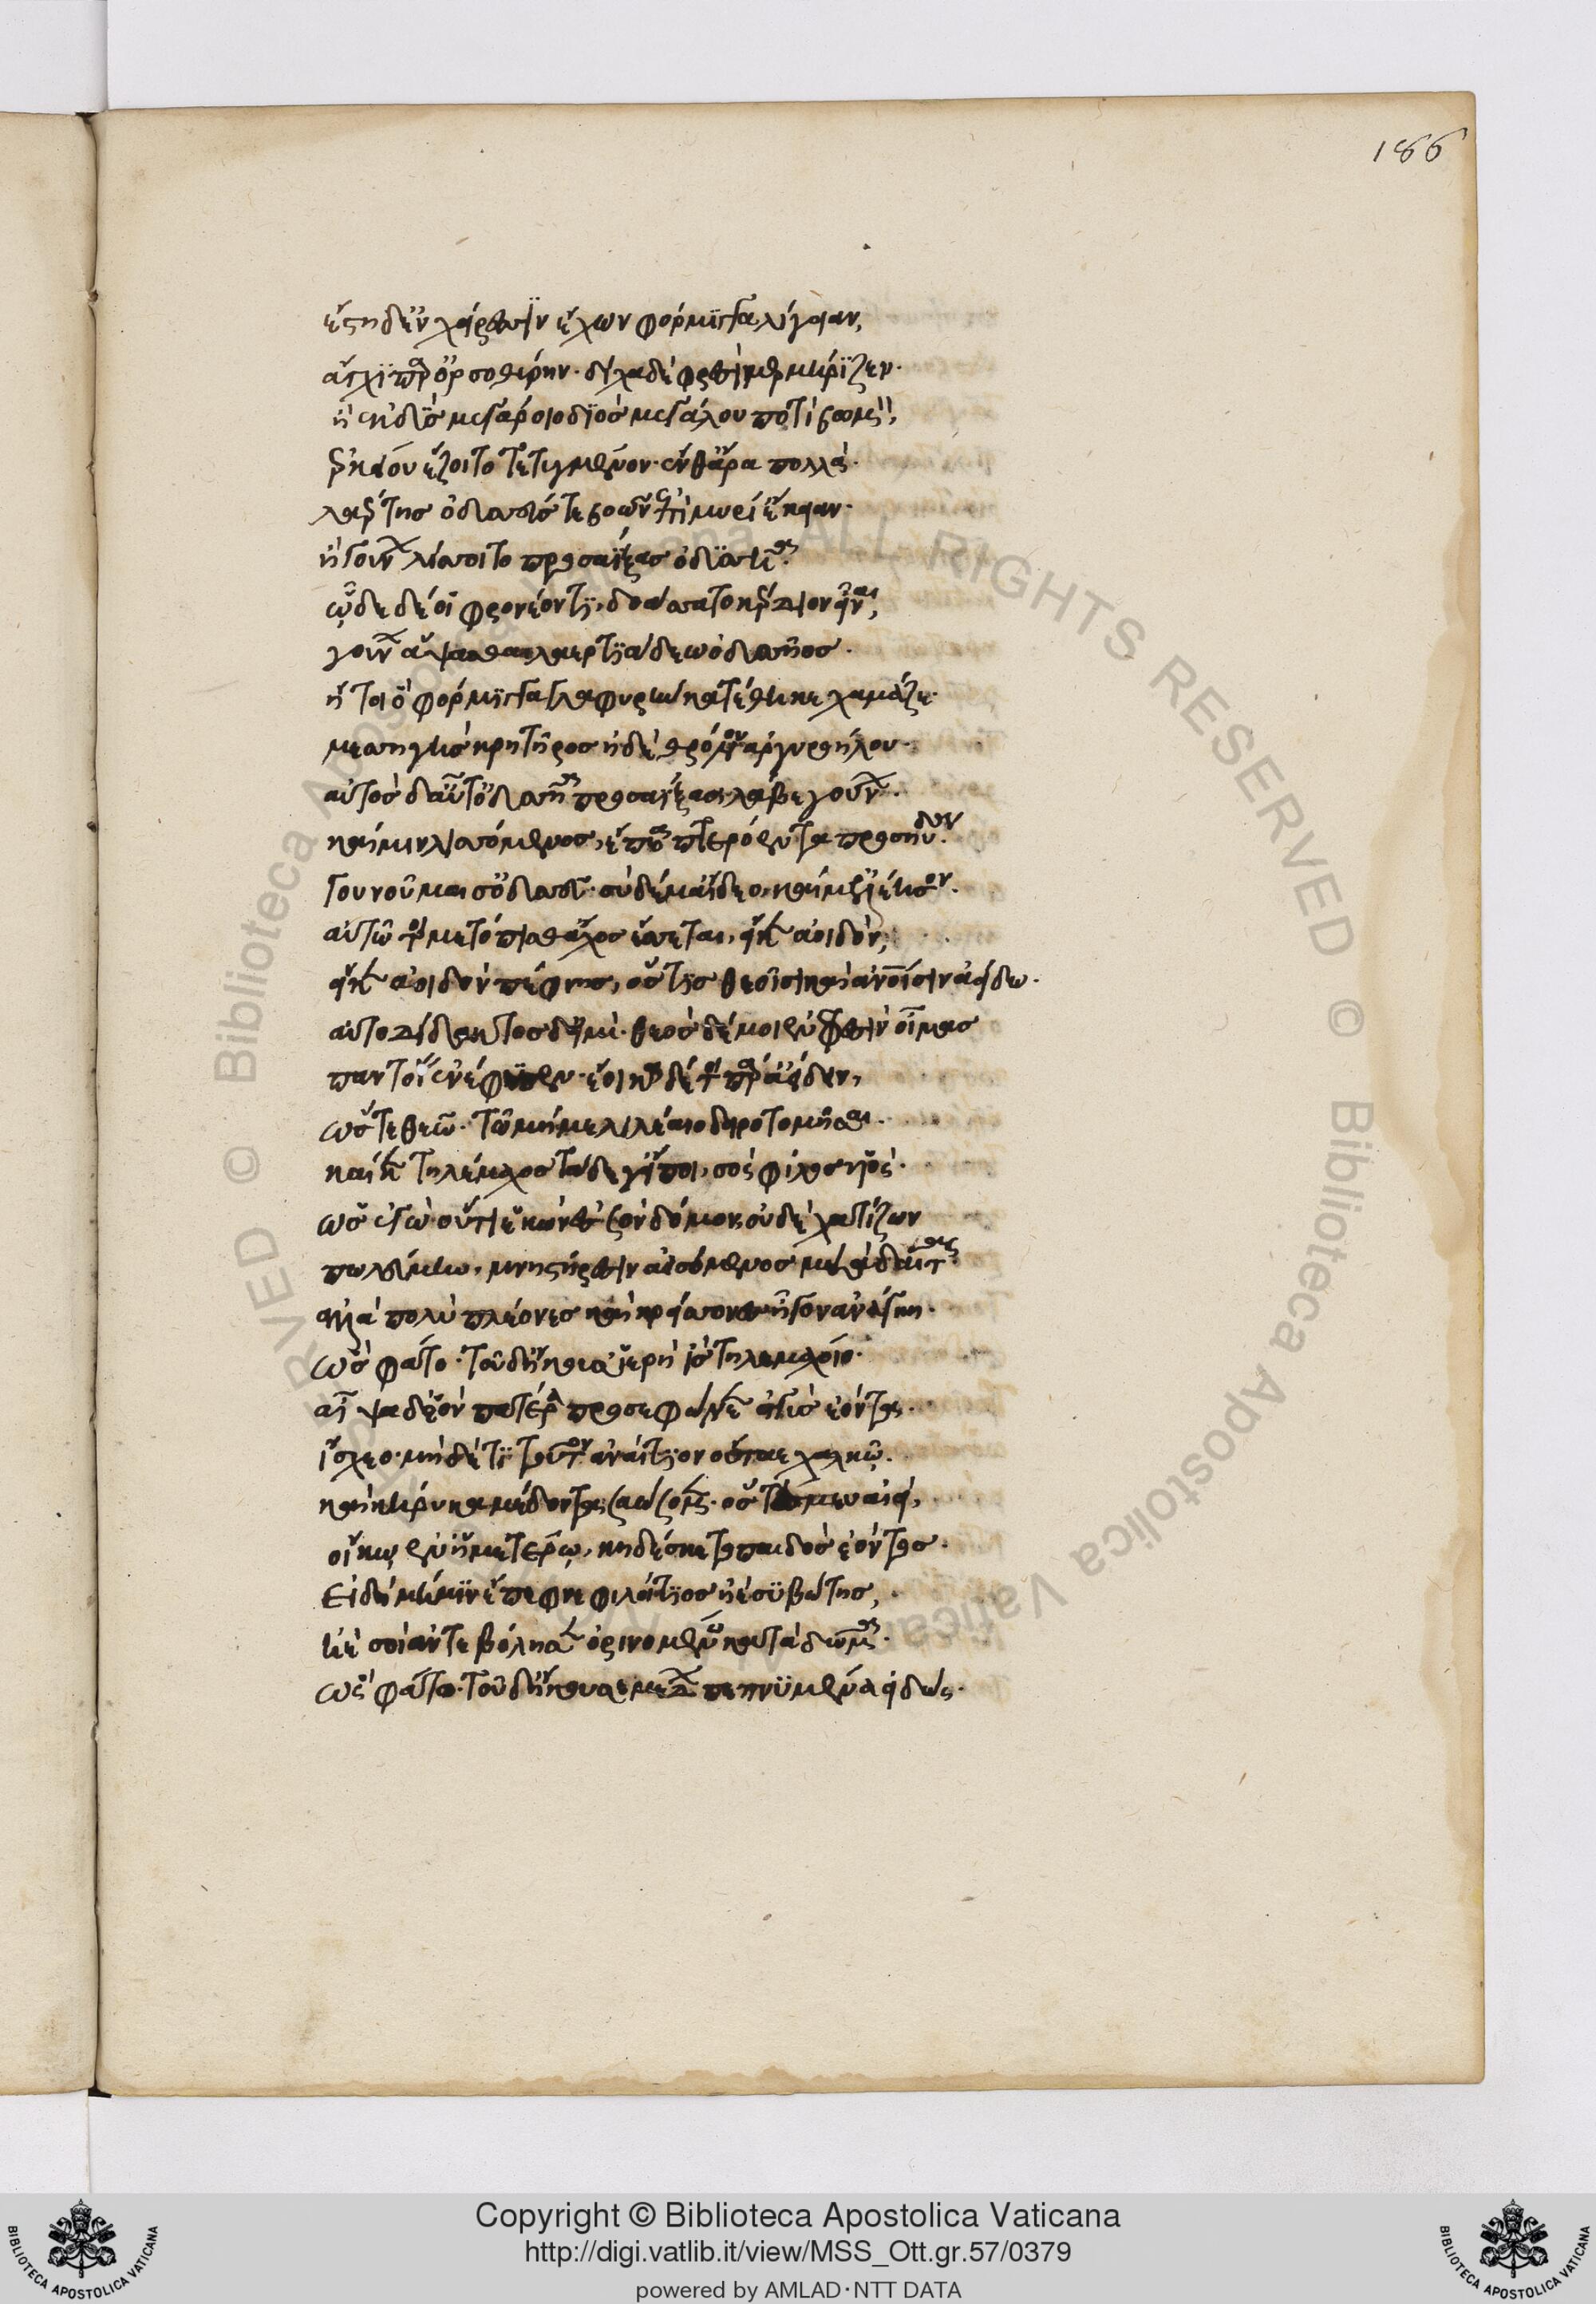 186
ἔστη δ' ἐν χείρεσσιν ἔχων φόρμιγγα λίγειαν,
ἄγχι παρ' ὀρσοθύρην· δίχα δὲ φρεσὶ μερμήριζεν·
ἢ ἐκδὺς μεγάροιο διὸς μεγάλου ποτὶ βωμὸν,
ἑρκείου ἕζοιτο τετυγμένον· ἔνθ' ἄρα πολλὰ
λαέρτης ὀδυσσεύς τε βοῶν ἐπὶ μηρί' ἔκηαν·
ἢ γούνων λίσσοιτο προσαΐξας ὀδυσσῆα.
ὧδε δέ οἱ φρονέοντι, δοάσσατο κέρδιον εἶναι,
γούνων ἅψασθαι λαερτιάδεω ὀδυσῆος.
ἤτοι ὁ φόρμιγγα γλαφυρὴν κατέθηκε χαμᾶζε·
μεσσηγὺς κρητῆρος ἠδὲ θρόνου ἀργυροήλου·
αὐτὸς δ' αὖτ' ὀδυσῆα προσαΐξας λάβε γούνων.
καί μιν λισσόμενος, ἔπεα πτερόεντα προσηύδων.
γουνοῦμαι σ' ὀδυσσεῦ· σὺ δέ μ' αἴδεο, καί μ' ἐλέησον.
αὐτῷ τοι μετόπισθ' ἄχος ἔσσεται, εἴ κεν ἀοιδὸν,
εἴ κεν ἀοιδὸν πέφνης, ὅς τις θεοῖσι καὶ ἀνθρώποισιν ἀείδω.
αὐτοδίδακτος δ' εἰμὶ· θεὸς δέ μοι ἐν φρεσὶν οἴμας
παντοίας ἐνέφυσεν· ἔοικα δέ τοι παραείδειν,
ὥστε θεῷ. τῷ μή με λιλαίεο δηροτομῆσαι.
καί κεν τηλέμαχος τάδε γ' εἴποι, σὸς φίλος υἱὸς.
ὡς ἐγὼ οὔτι ἑκὼν ἐς σὸν δόμον, οὐδὲ χατίζων
πωλεύμην, μνηστῆρσιν ἀεισόμενος μετὰ δαῖτας.
ἀλλὰ πολὺ πλέονες καὶ κρείσσονες ἦγον ἀνάγκῃ.
ὣς φάτο· τοῦ δ' ἤκουσ' ἱερὴ ἲς τηλεμάχοιο.
αἶψα δ' ἑὸν πατέρα προσεφώνεεν ἐγγὺς ἐόντα.
ἴσχεο· μηδέ τι τοῦτον ἀναίτιον οὔταε χαλκῷ.
καὶ κήρυκα μέδοντα σαώσομεν. ὅς τέ μευ αἰεί,
οἴκῳ ἐν ἡμετέρῳ, κηδέσκετο παιδὸς ἐόντος.
εἰ δὴ μή μιν ἔπεφνε φιλοίτιος ἠὲ συβώτης,
ἠὲ σοὶ ἀντεβόλησεν ὀρινομένῳ κατὰ δῶμα.
ὣς φάτο· τοῦ δ' ἤκουσε μέδων πεπνυμένα εἰδώς.
Copyright © Biblioteca Apostolica Vaticana
http://digi.vatlib.it/view/MSS_Ott.gr.57/0379
powered by AMLAD·NTT DATA